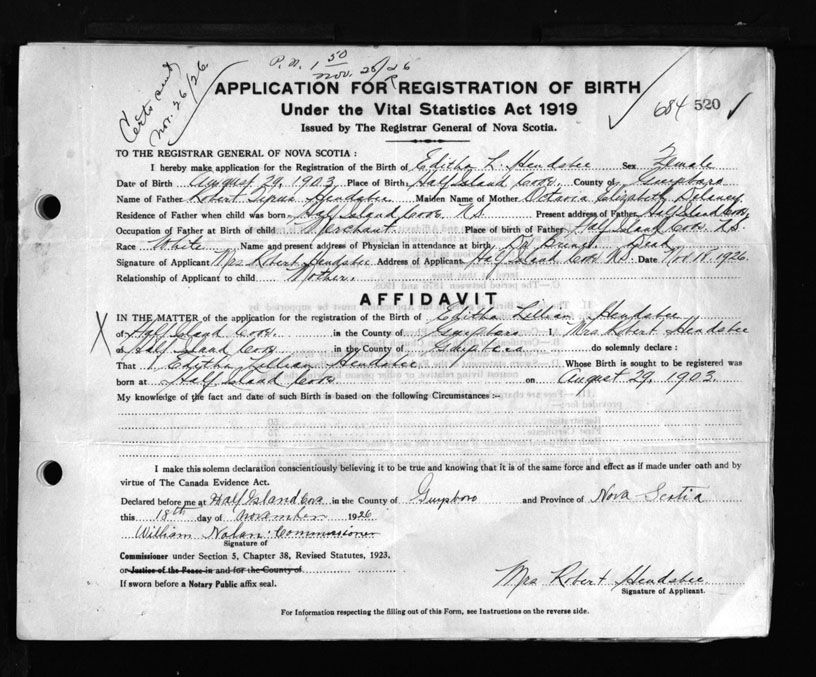 Certs sent
Nov. 26/26
P.N. 1 50
Nov. 26/26
APPLICATION FOR REGISTRATION OF BIRTH
Under the Vital Statistics Act 1919
Issued by The Registrar General of Nova Scotia.
684 520
TO THE REGISTRAR GENERAL OF NOVA SCOTIA:
I hereby make application for the Registration of the Birth of Editha L. Hendsbee Sex Female
Date of Birth August 29, 1903. Place of Birth Half Island Cove. County of Guysboro
Name of Father Robert Hendsbee Maiden Name of Mother Octavia Elizabeth Delaney
Residence of Father when child was born Half Island Cove N.S. Present address of Father Half Island Cove
Occupation of Father at Birth of child Merchant. Place of birth of Father Half Island Cove N.S.
Race White Name and present address of Physician in attendance at birth Dr. Dead
Signature of Applicant Mrs Robert Hendsbee Address of Applicant Half Island Cove N.S. Date Nov 18, 1926.
Relationship of Applicant to child Mother.
AFFIDAVIT
IN THE MATTER of the application for the registration of the Birth of Editha Lillian Hendsbee
X of Half Island Cove. in the County of Guysboro I, Mrs Robert Hendsbee
of Half Island Cove in the County of Guysboro do solemnly declare:
That 1 Editha Lillian Hendsbee Whose Birth is sought to be registered was
born at Half Island Cove on August 29, 1903.
My knowledge of the fact and date of such Birth is based on the following Circumstances:-
I make this solemn declaration conscientiously believing it to be true and knowing that it is of the same force and effect as if made under oath and by
virtue of The Canada Evidence Act.
Declared before me at Half Island Cove in the County of Guysboro and Province of Nova Scotia
this 18th day of November 1926
William Nolan. Commissioner
Signature of
Commissioner under Section 5, Chapter 38, Revised Statutes, 1923.
or Justice of the Peace in and for the County of
If sworn before a Notary Public affix seal.
Mrs Robert Hendsbee
Signature of Applicant.
For Information respecting the filling out of this Form, see Instructions on the reverse side.